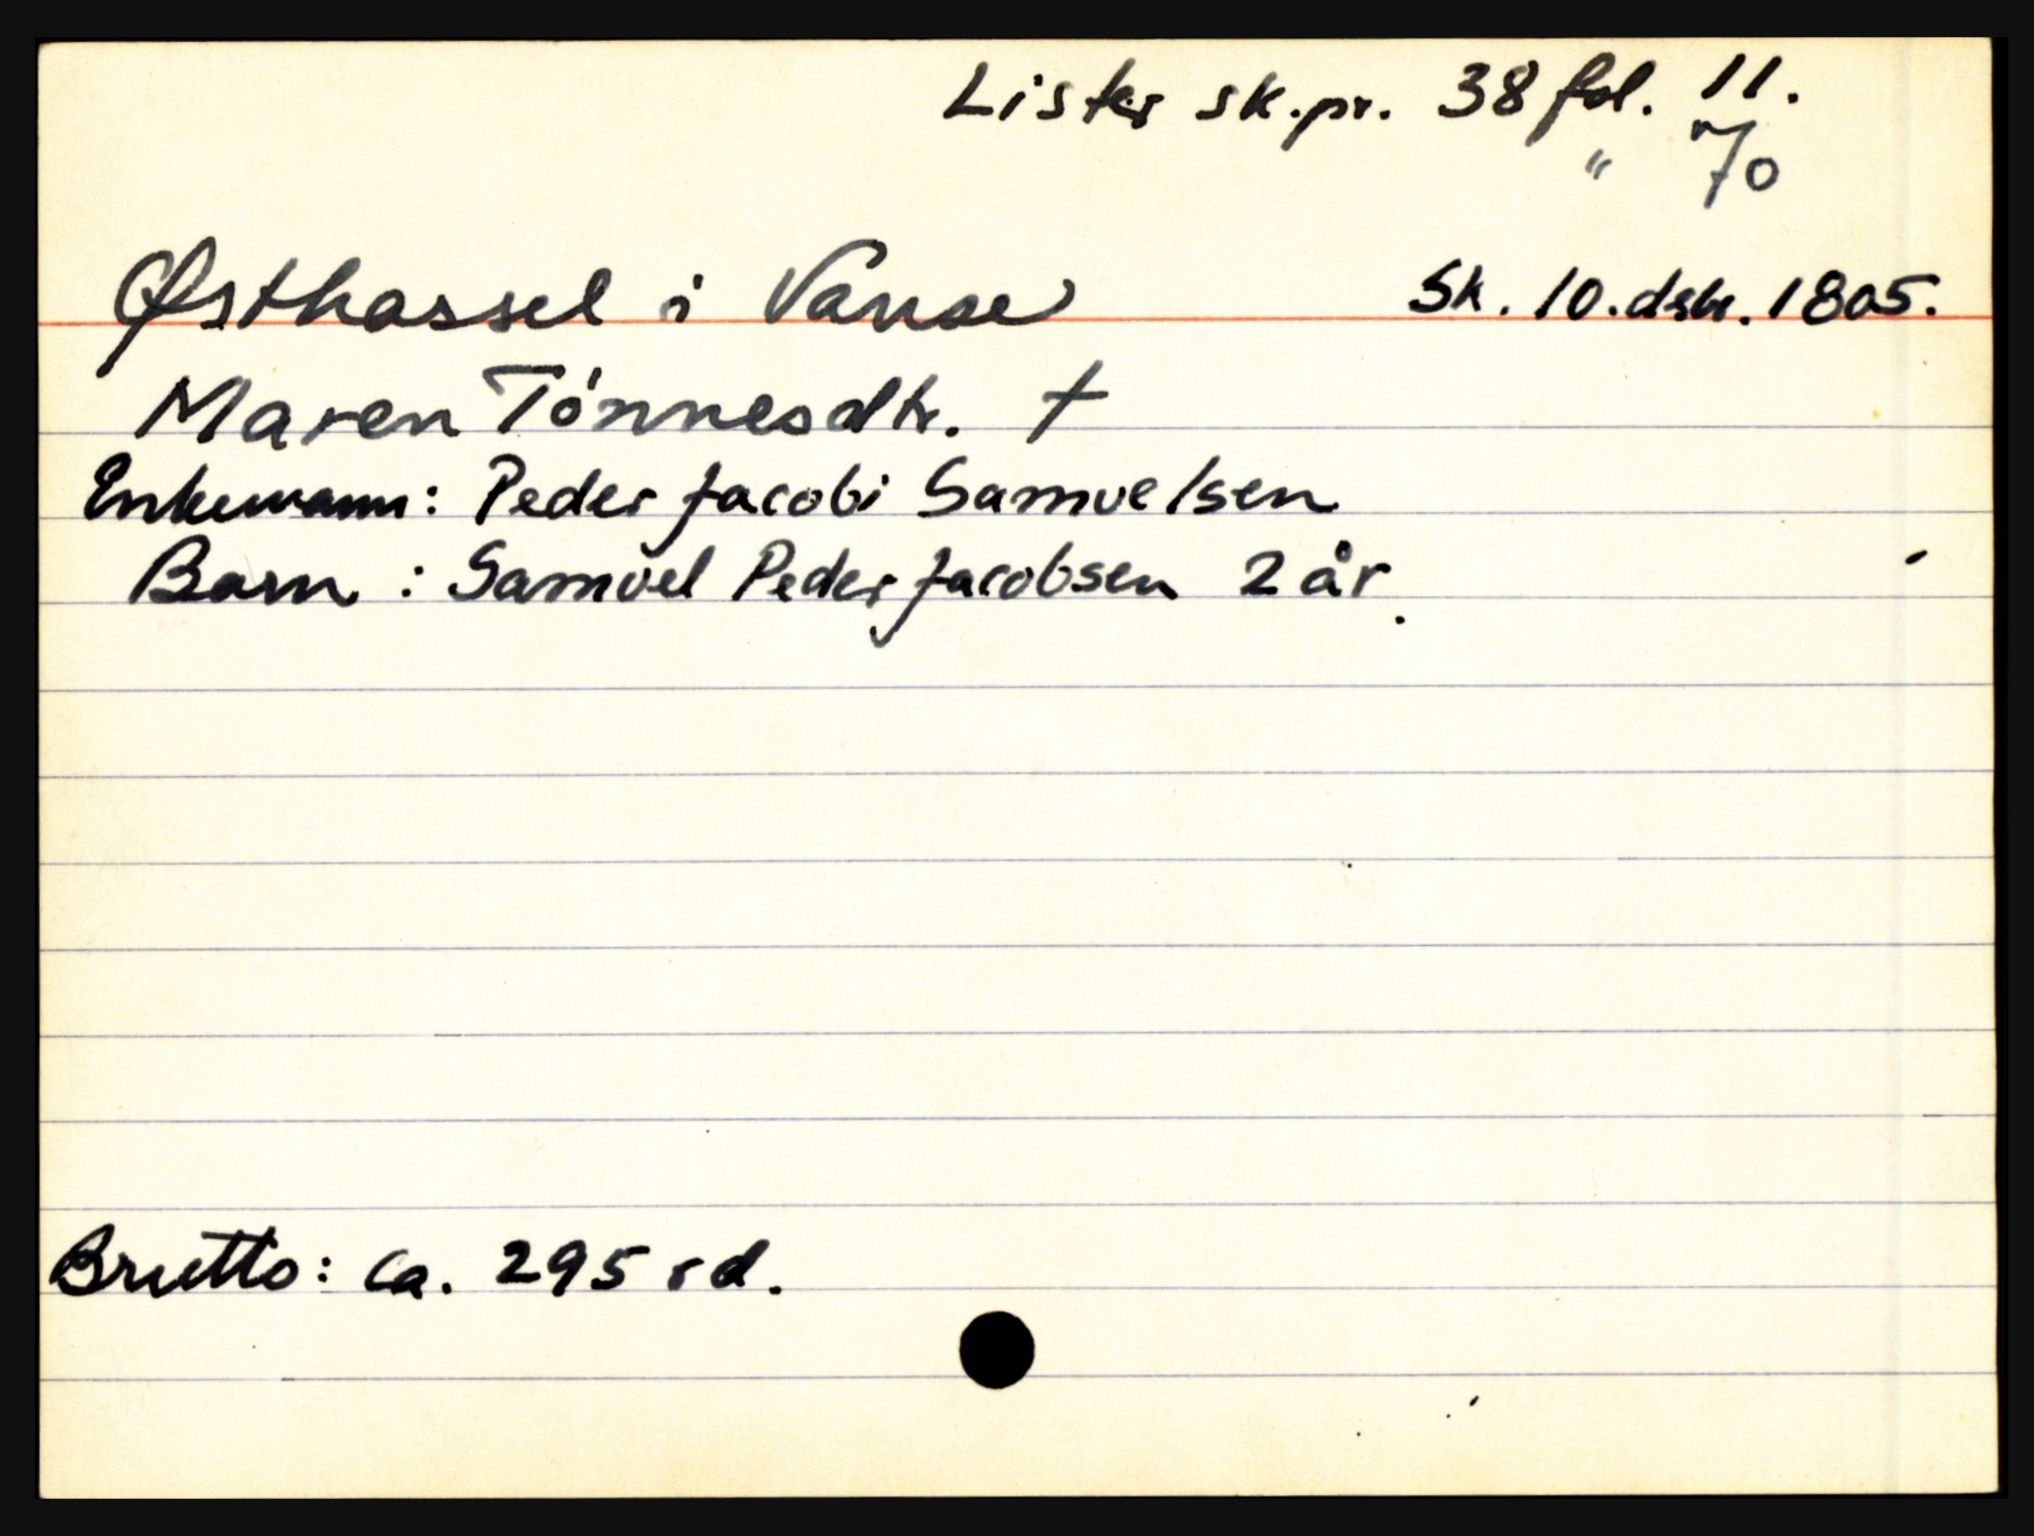 Lister sk.pr. 38 fol. 11.
" 70
Østhassel i Vanse Sk. 10. dsbr. 1805.
Maren Tónnesdtr. †
Enkemann: Peder Jacobi Samuelsen
Barn : Samuel Peder Jacobsen 2 år.
Brutto: ca. 295 rd.